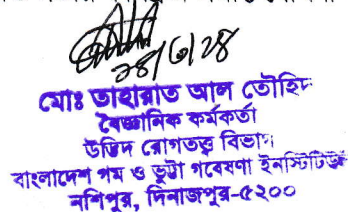 ২৪/৬/২৪
মোঃ তাহারাত আল তৌহিদ
বৈজ্ঞানিক কর্মকর্তা
উদ্ভিদ রোগতত্ত্ব বিভাগ
বাংলাদেশ গম ও ভুট্টা গবেষণা ইনস্টিটিউট
নশিপুর, দিনাজপুর-৫২০০